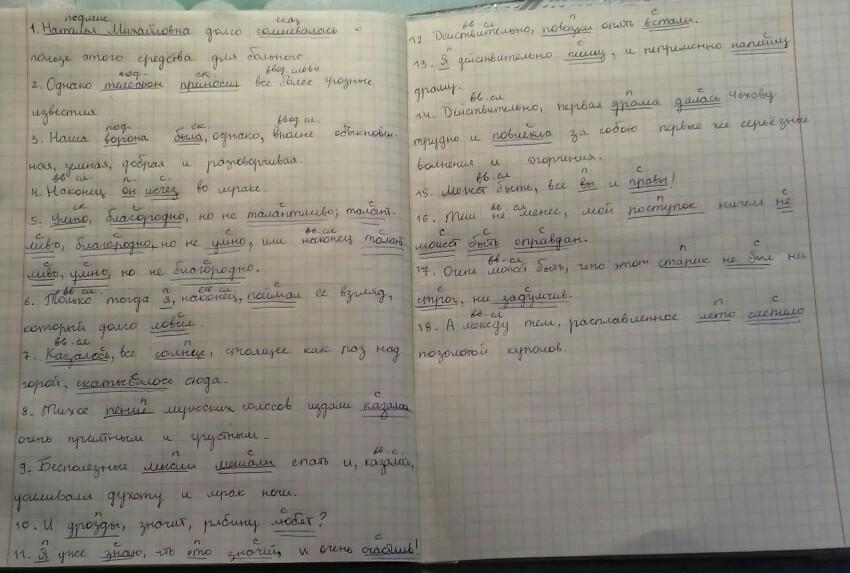 подлис сказ
1. Наталья Михайловна долго сомневалась о
пользе этого средства для больного.
под. ск. ввод. слово
2. Однако телефон приносил все более грозные
известия
под. ск. ввод сл.
3. Наша ворона была, однако, вполне обыкновен-
ная, земная, добрая и разговорчивая.
вв сл. п. с.
4. Наконец он исчез во мраке.
ск с с
5. Умно, благородно, но не талантливо; талант-
ливо, благородно, но не умно, или наконец талант-
вв. сл
ливо, умно, но не благородно.
вв сл. п вв. сл с
6. Только тогда я, наконец, поймал ее взгляд,
который долго ловил.
вв. сл п
7. Казалось, все солнце, стоящее как раз над
горой, скатывалось сюда.
п с
8. Тихое пение мужских голосов издали казалось
очень приятным и грустным.
п с вв. с.
9. Бесполезные мысли мешали спать и, казалось,
усиливали духоту и мрак ночи.
п с
10. И дрозды, значит, рябину любят?
п с п с с
11. Я уже знаю, что это значит, и очень счастлив!
вв. сл п с
12. Действительно, повозки опять встали.
п с с
13. Я действительно пишу, и непременно напишу
драму.
вв. сл п с
14. Действительно, первая драма далась Чехову
трудно и повлекла за собою первые же серьёзные
волнения и огорчения.
вв. сл п с
15. Может быть, все вы и правы!
вв. сл п с
16. Тем не менее, мой поступок ничем не
с с с
может быть оправдан.
вв. сл п с
17. Очень может быть, что этот старик не был ни
с с
строг, ни задумчив.
вв. сл п с
18. А между тем, расплавленное лето слепило
позолотой куполов.